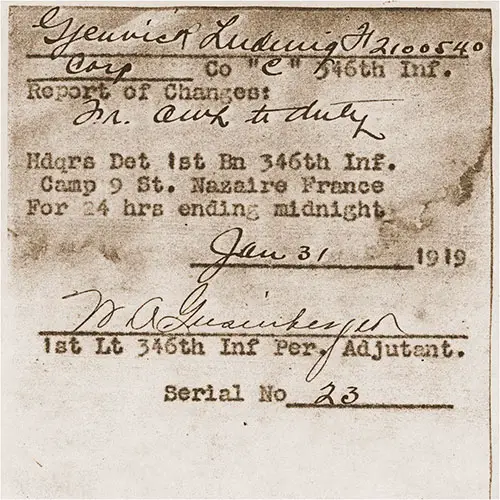 Gjenvick Ludwig 2100540
Corp Co "C" 346th Inf.
Report of Changes:
Fr. awol to duty
Hdqrs Det 1st Bn 346th Inf.
Camp 9 St. Nazaire France
For 24 hrs ending midnight
Jan 31 1919
W A
1st Lt 346th Inf Per. Adjutant.
Serial No 23